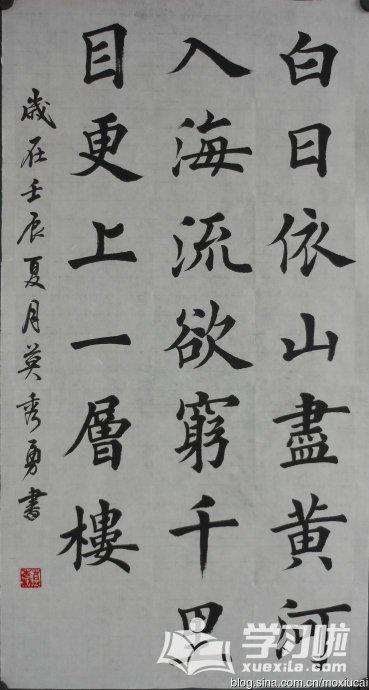 白日依山盡黄河
入海流欲窮千里
目更上一層樓
歲在壬辰夏月莫秀勇書
学习啦
xuexila.com
blog.sina.com.cn/moxiucai